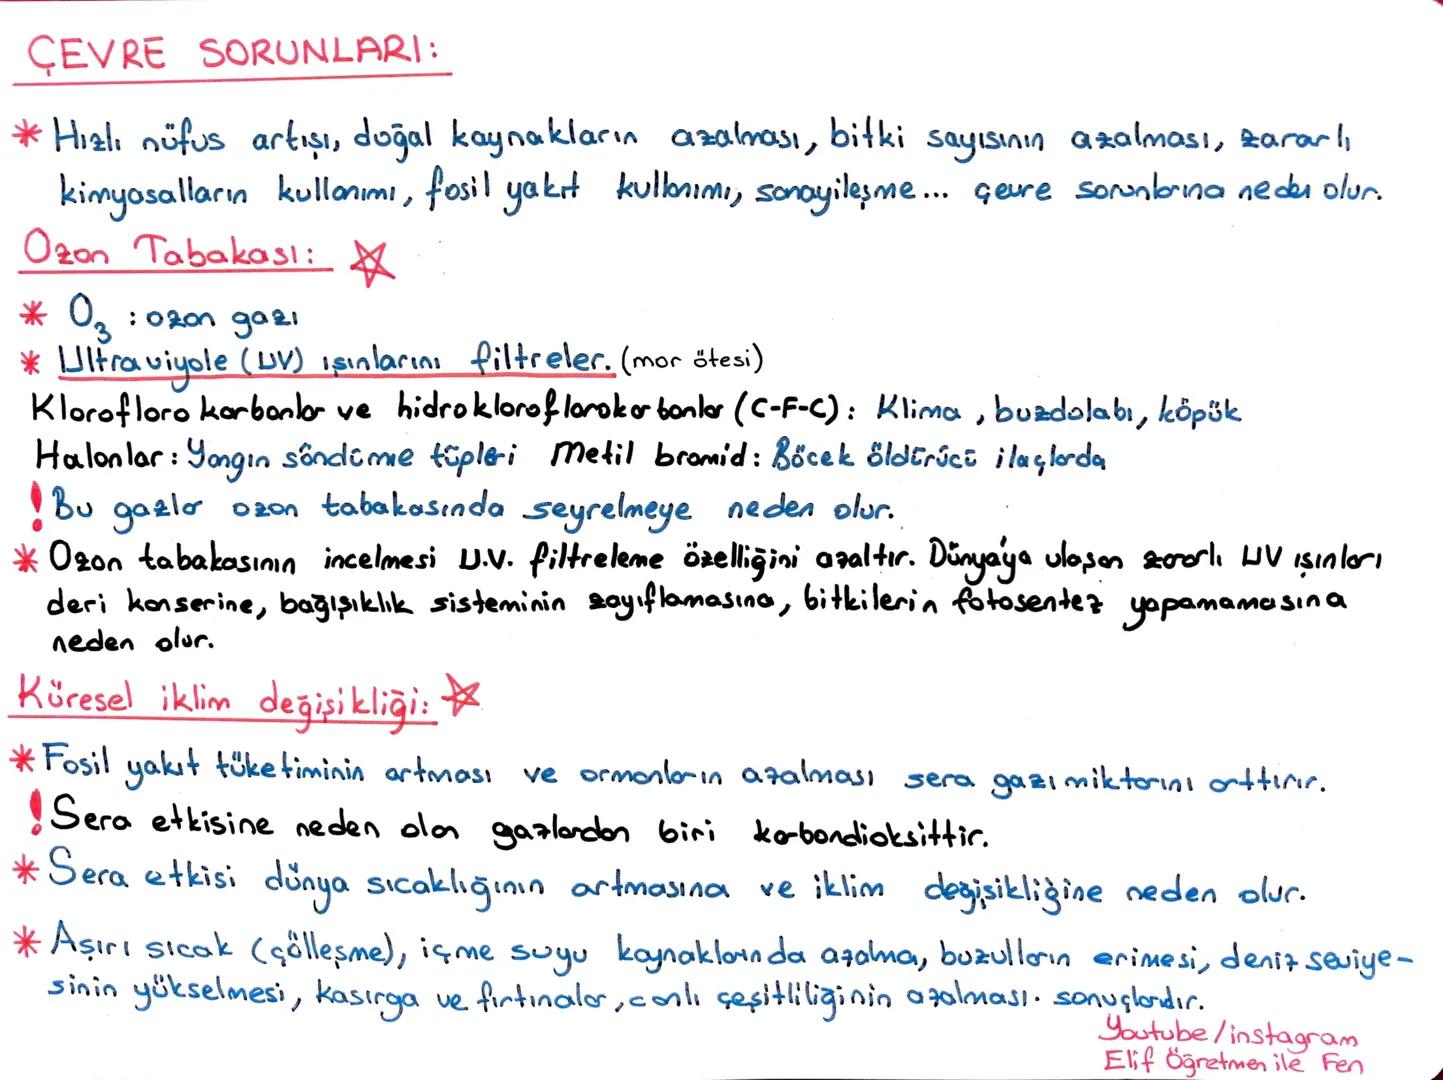 ÇEVRE SORUNLARI:
* Hızlı nüfus artışı, doğal kaynakların azalması, bitki sayısının azalması, zararlı
kimyasalların kullanımı, fosil yakıt kullanımı, sanayileşme... çevre sorunlarına neden olur.
Ozon Tabakası: ☆
* O₃ : ozon gazı
* Ultraviyole (UV) ışınlarını filtreler. (mor ötesi)
Klorofloro karbonlar ve hidrokloroflorokarbonlar (C-F-C): Klima, buzdolabı, köpük
Halonlar: Yangın söndürme tüpleri Metil bromid: Böcek öldürücü ilaçlarda
! Bu gazlar ozon tabakasında seyrelmeye neden olur.
* Ozon tabakasının incelmesi U.V. filtreleme özelliğini azaltır. Dünya'ya ulaşan zararlı UV ışınları
deri kanserine, bağışıklık sisteminin zayıflamasına, bitkilerin fotosentez yapamamasına
neden olur.
Küresel iklim değişikliği: ☆
* Fosil yakıt tüketiminin artması ve ormanların azalması sera gazı miktarını arttırır.
! Sera etkisine neden olan gazlardan biri karbondioksittir.
* Sera etkisi dünya sıcaklığının artmasına ve iklim değişikliğine neden olur.
* Aşırı sıcak (çölleşme), içme suyu kaynaklarında azalma, buzulların erimesi, deniz seviye-
sinin yükselmesi, kasırga ve fırtınalar, canlı çeşitliliğinin azalması. sonuçlarıdır.
Youtube/instagram
Elif Öğretmen ile Fen